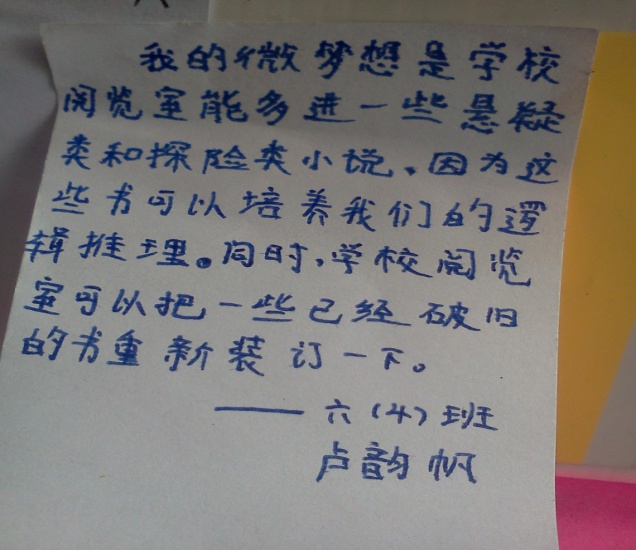 我的微梦想是学校
阅览室能多进一些悬疑
类和探险类小说、因为这
些书可以培养我们的逻
辑推理。同时,学校阅览
室可以把一些已经破旧
的书重新装订一下。
——六(4)班
卢韵帆